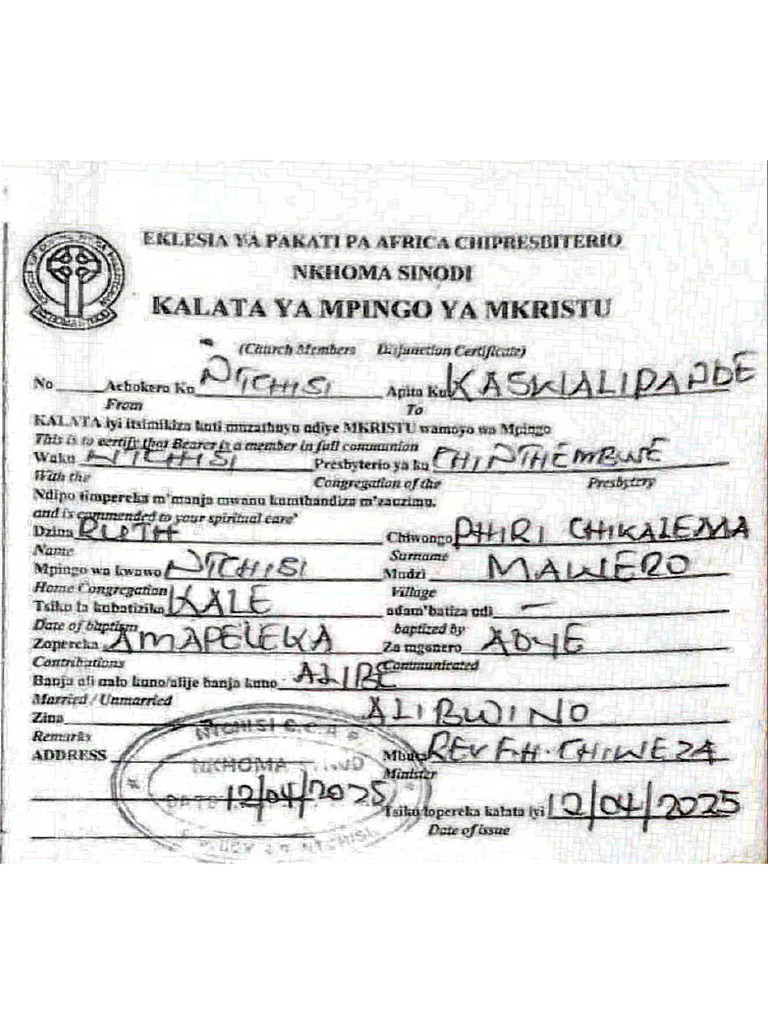 EKLESIA YA PAKATI PA AFRICA CHIPRESBITERIO
NKHOMA SINODI
KALATA YA MPINGO YA MKRISTU
(Church Members Disjunction Certificate)
No Achokera Ku NTCHISI Apita Ku KASWIALIPANDE
From To
KALATA iyi itsimikiza kuti munthuyo ndiye MKRISTU wamoyo wa Mpingo
This is to certify that Bearer is a member in full communion
Waku NTCHISI Presbyterio ya ku CHINTHEMBWE
With the Congregation of the Presbytery
Ndipo timpereka m'manja mwanu kumthandiza m'zauzimu.
and is commended to your spiritual care'
Dzina RUTH Chiwongo PHIRI CHIKALEMA
Name Surname
Mpingo wa kwawo NTCHISI Mudzi MAWERO
Home Congregation Village
Tsiku la kubatizika KALE adam'batiza ndi —
Date of baptism baptized by
Zopereka AMAPELEKA Za mgonero ADYE
Contributions Communicated
Banja ali nalo kuno/alije banja kuno ALIBE
Married / Unmarried
Zina ALIBWINO
Remarks
ADDRESS REV F.H. CHIWEZA
Minister
NTCHISI C.C.A.P
NKHOMA
12/04/2025
NTCHISI
Tsiku lopereka kalata iyi 12/04/2025
Date of issue